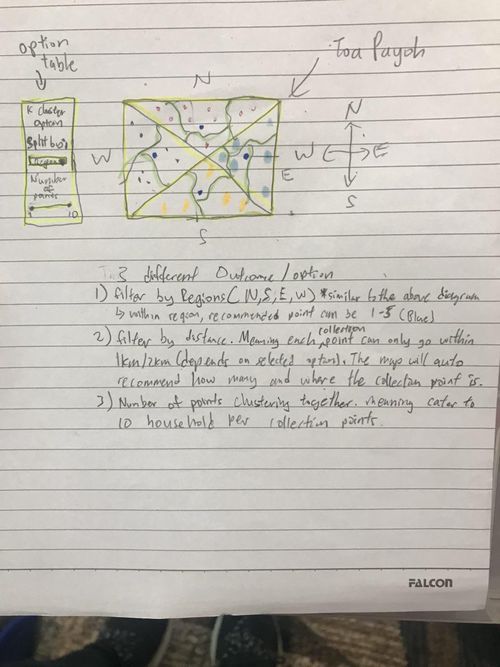 option
table
Toa Payoh
N
K cluster
option
Split by:
Region
Number
of
points
1 10
W
E
S
N
W E
S
3 different Outcome/option
1) filter by Regions (N,S,E,W) *similar to the above diagram
↳ within region, recommended point can be 1-5 (Blue)
2) filter by distance. Meaning each collection point can only go within
1km/2km (depends on selected option). The map will auto
recommend how many and where the collection point is.
3) Number of points clustering together. Meaning cater to
10 household per collection points.
FALCON